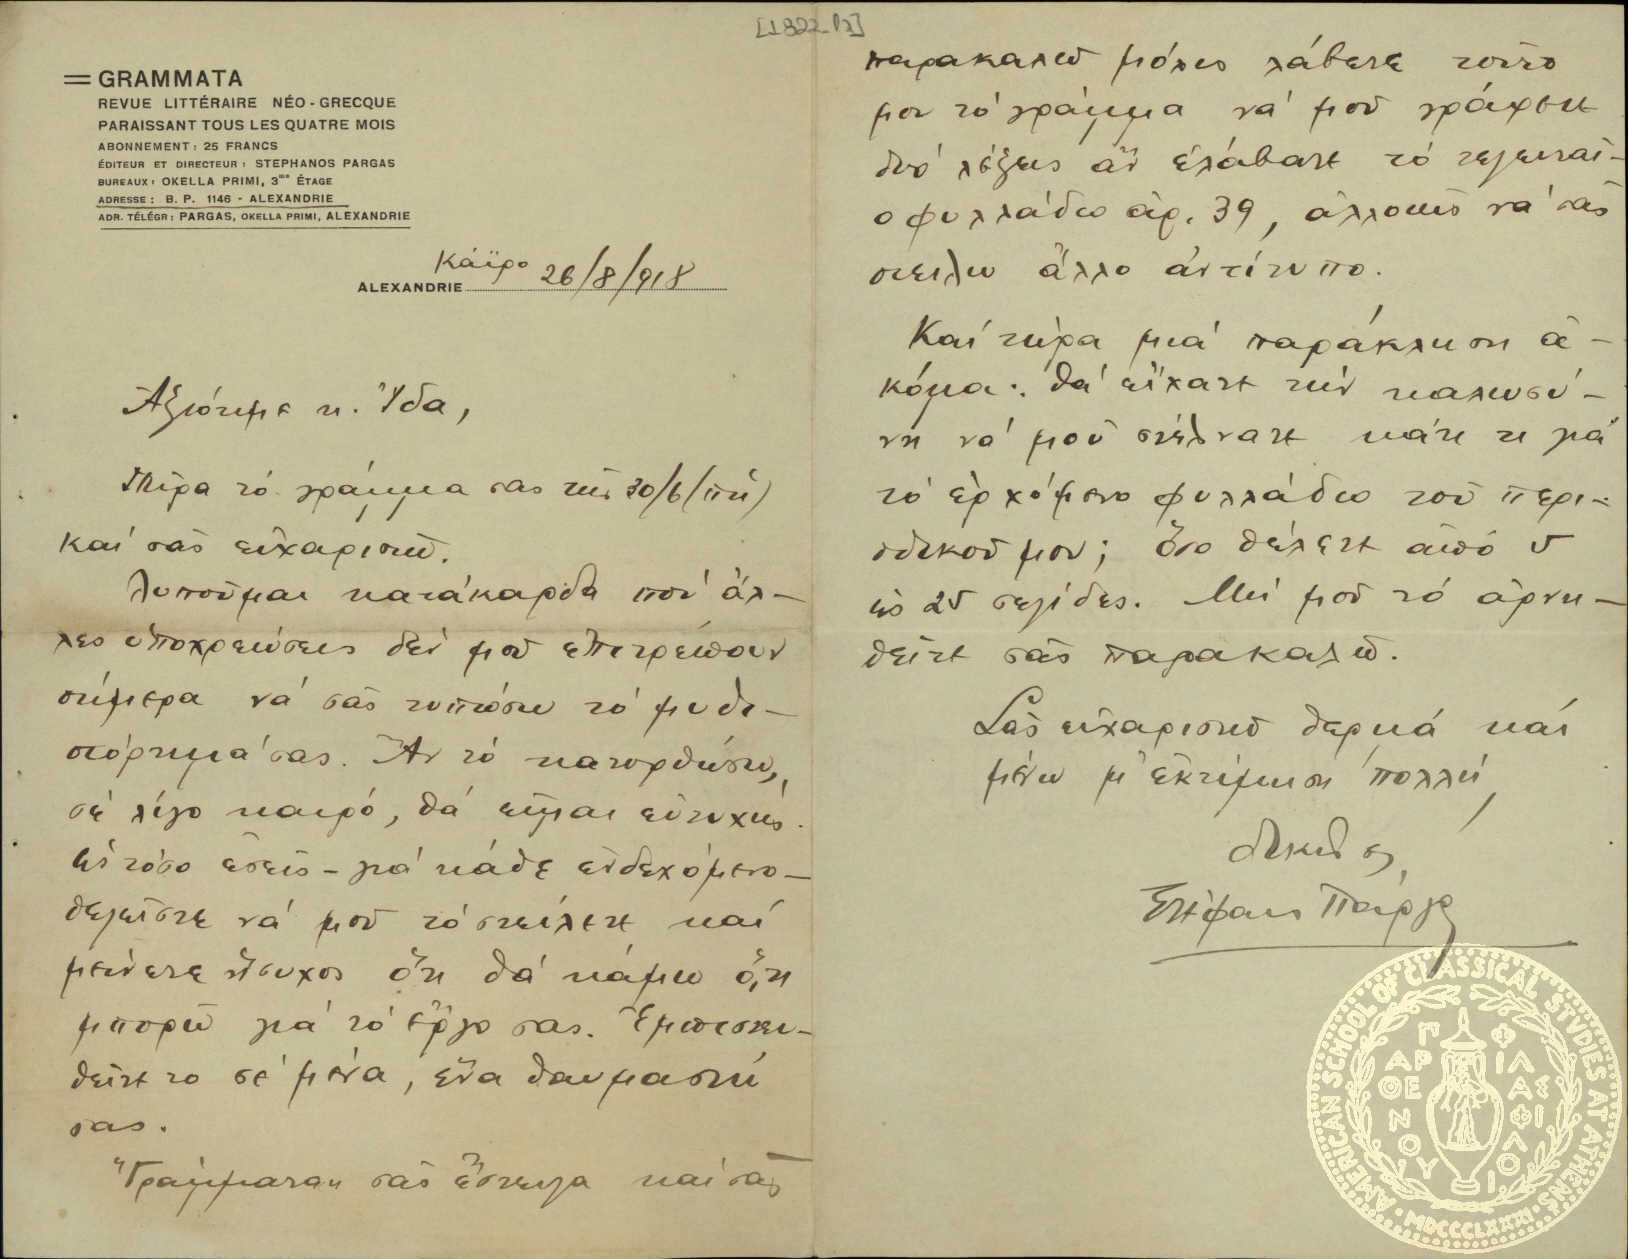 [1822 β2]
GRAMMATA
REVUE LITTÉRAIRE NÉO-GRECQUE
PARAISSANT TOUS LES QUATRE MOIS
ABONNEMENT: 25 FRANCS
ÉDITEUR ET DIRECTEUR: STEPHANOS PARGAS
BUREAUX: OKELLA PRIMI, 3me ÉTAGE
ADRESSE: B. P. 1146 - ALEXANDRIE
ADR. TÉLÉGR: PARGAS, OKELLA PRIMI, ALEXANDRIE
Κάϊρο
ALEXANDRIE 26/8/918
Ἀξιότιμε κ. Ἴδα,
Πῆρα τό γράμμα σας τῆς 30/6/(πή)
καί σᾶς εὐχαριστῶ.
Λυποῦμαι κατάκαρδα πού ἄλ-
λες ὑποχρεώσεις δέν μοῦ ἐπιτρέπουν
σήμερα νά σᾶς τυπώσω τό μυθι-
στόρημά σας. Ἄν τό κατορθώσω,
σέ λίγο καιρό, θά εἶμαι εὐτυχής.
Ἐν τόσο ἐσεῖς - γιά κάθε ἐνδεχόμενο -
θελεῖστε νά μοῦ τό στείλετε καί
μείνετε ἥσυχος ὅτι θά κάμω ὅ,τι
μπορῶ γιά τό ἔργο σας. Ἐμπιστευ-
θεῖτε το σέ μένα, ἕνα θαυμαστή
σας.
"Γράμματα" σᾶς ἔστειλα καί σᾶς
παρακαλῶ μόλις λάβετε τοῦτο
μου τό γράμμα νά μοῦ γράψετε
δυό λέξεις ἄν ἐλάβατε τό τελευταῖ-
ο φυλλάδιο ἀρ. 39, ἀλλοιῶς νά σᾶς
στείλω ἄλλο ἀντίτυπο.
Καί τώρα μιά παράκληση ἀ-
κόμα: θά εἴχατε τήν καλωσύ-
νη νά μοῦ στέλνατε κάτι τι γιά
τό ἐρχόμενο φυλλάδιο τοῦ περι-
οδικοῦ μου; ὅσο θέλετε ἀπό 5
ὡς 25 σελίδες. Μή μοῦ τό ἀρνη-
θεῖτε σᾶς παρακαλῶ.
Σᾶς εὐχαριστῶ θερμά καί
μένω μ' ἐκτίμηση πολλή,
δικός σ.
Στέφανος Πάργας
AMERICAN SCHOOL OF CLASSICAL STUDIES AT ATHENS
ΠΑΡΘΕΝΟΥ ΦΙΛΑΣ ΦΙΛΟΙ
MDCCCLXXXI